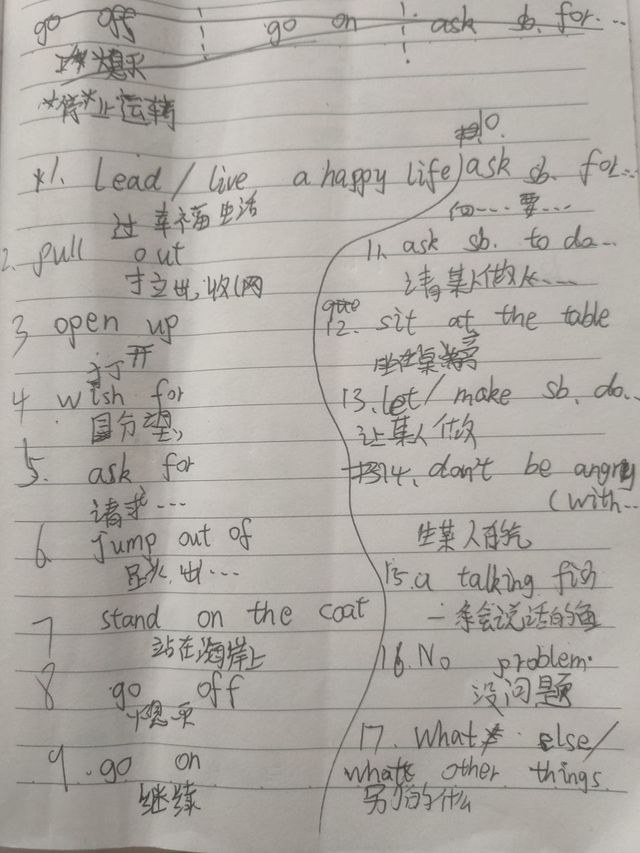 go off go on ask sb. for...
熄灭
停止运转
*1. lead / live a happy life
过幸福生活
2. pull out
拉出,收网
3 open up
打开
4 wish for
盼望
5. ask for
请求...
6. jump out of
跳出...
7 stand on the coat
站在海岸上
8 go off
熄灭
9. go on
继续
10.
ask sb. for...
向...要...
11. ask sb. to do...
请某人做...
12. sit at the table
坐在桌旁
13. let / make sb. do...
让某人做
14. don't be angry
(with...
生某人的气
15. a talking fish
一条会说话的鱼
16. No problem.
没问题
17. What else /
what other things
另外的什么